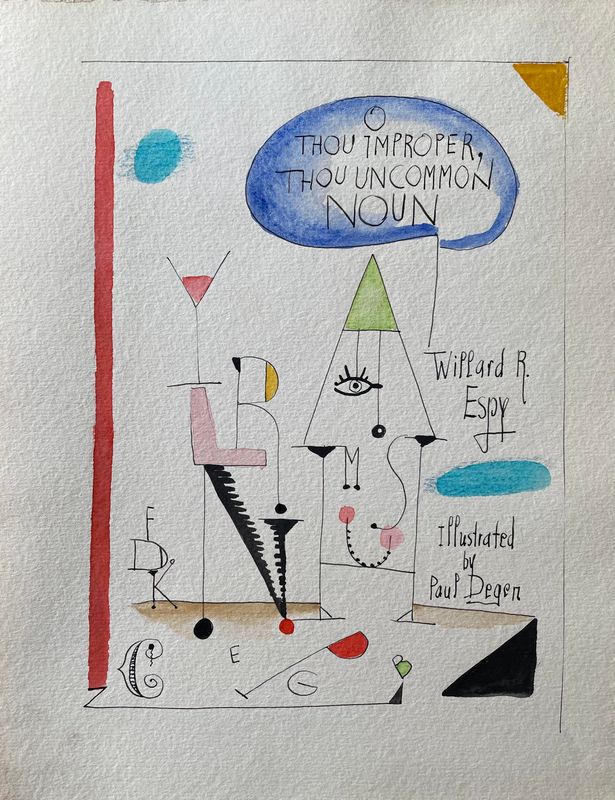 O
THOU IMPROPER,
THOU UNCOMMON
NOUN
Willard R.
Espy
Illustrated
by
Paul Degen
Y
R
A
L
M
S
V
F
D
K
C
E
G
B